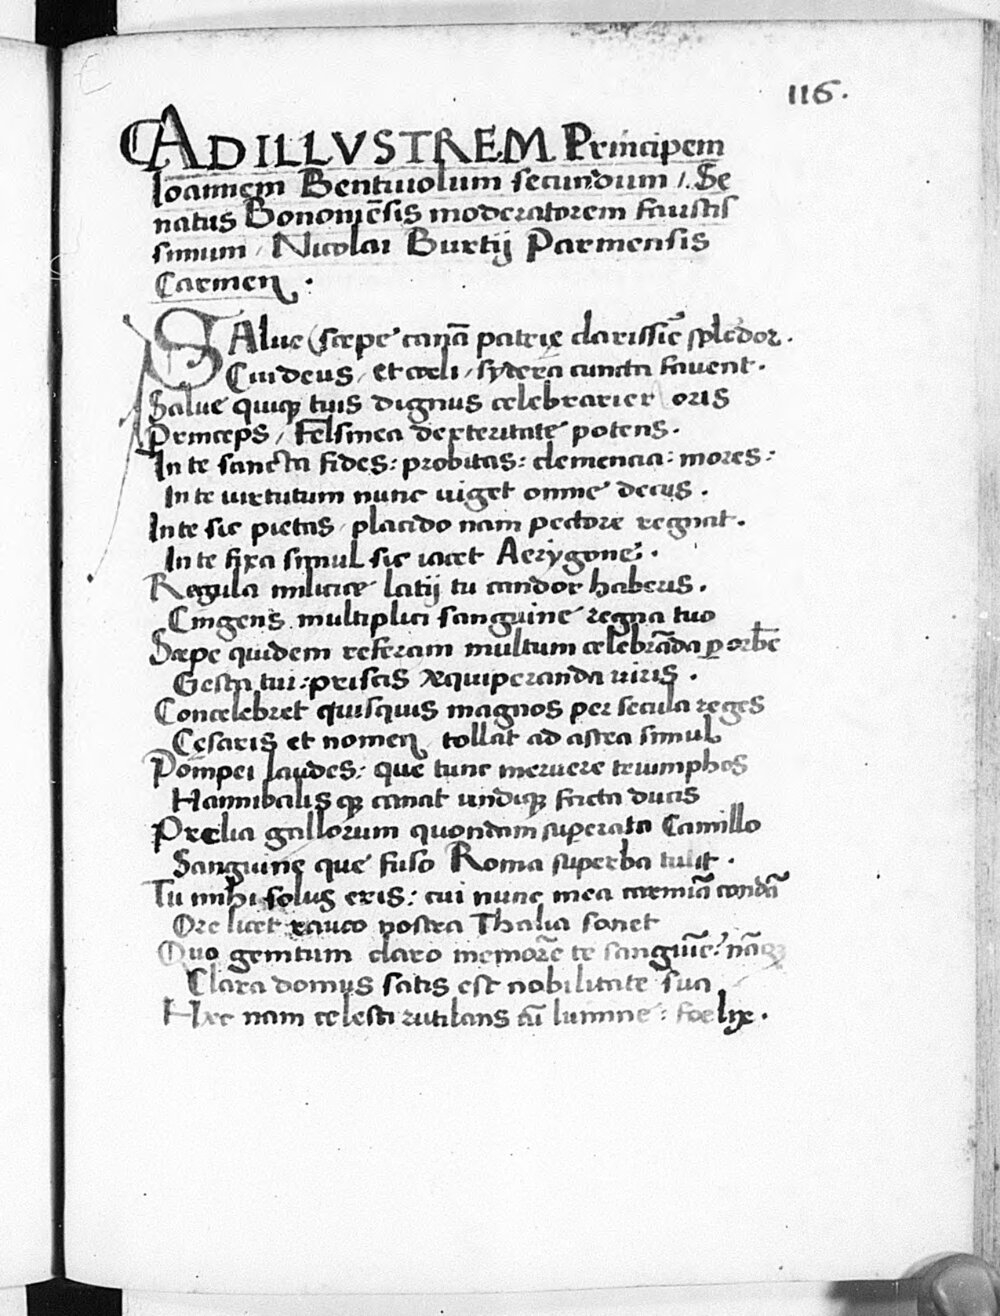 116.
AD ILLVSTREM Principem
Ioannem Bentiuolum secundum /. Se
natus Bononiẽsis moderatorem faustis
simum / Nicolai Burtij Parmensis
Carmen .
SAlue (sæpe canã patrię clarissiẽ splẽdor .
Cui deus / et cœli / sydera cuncta fauent .
Salue quiqꝫ tuis dignus celebrarier oris
Princeps / Felsinea dexteritate potens .
In te sancta fides : probitas : clemencia : mores :
In te uirtutum nunc uiget omne decus .
In te sic pietas / placido nam pectore regnat .
In te fixa simul sic iacet Aerygone .
Regula miliciæ latij tu candor haberis .
Cingens multiplici sanguine regna tuo
Sæpe quidem referam multum celebrãda ꝑ orbẽ
Gesta tui : priscis æquiperanda uiris .
Concelebret quisquis magnos per secula reges
Cęsaris et nomen tollat ad astra simul
Pompei laudes : que tunc meruere triumphos
Hannibalis qꝫ canat undiqꝫ facta ducis
Prælia gallorum quondam superata Camillo
Sanguine que fuso Roma superba tulit .
Tu mihi solus eris : cui nunc mea carmiã condã
Ore licet rauco nostra Thalia sonet
Quo genitum claro memorẽ te sanguiẽ ? nãqꝫ
Clara domus satis est nobilitate sua
Hæc nam celesti rutilans cũ lumine : foelix .